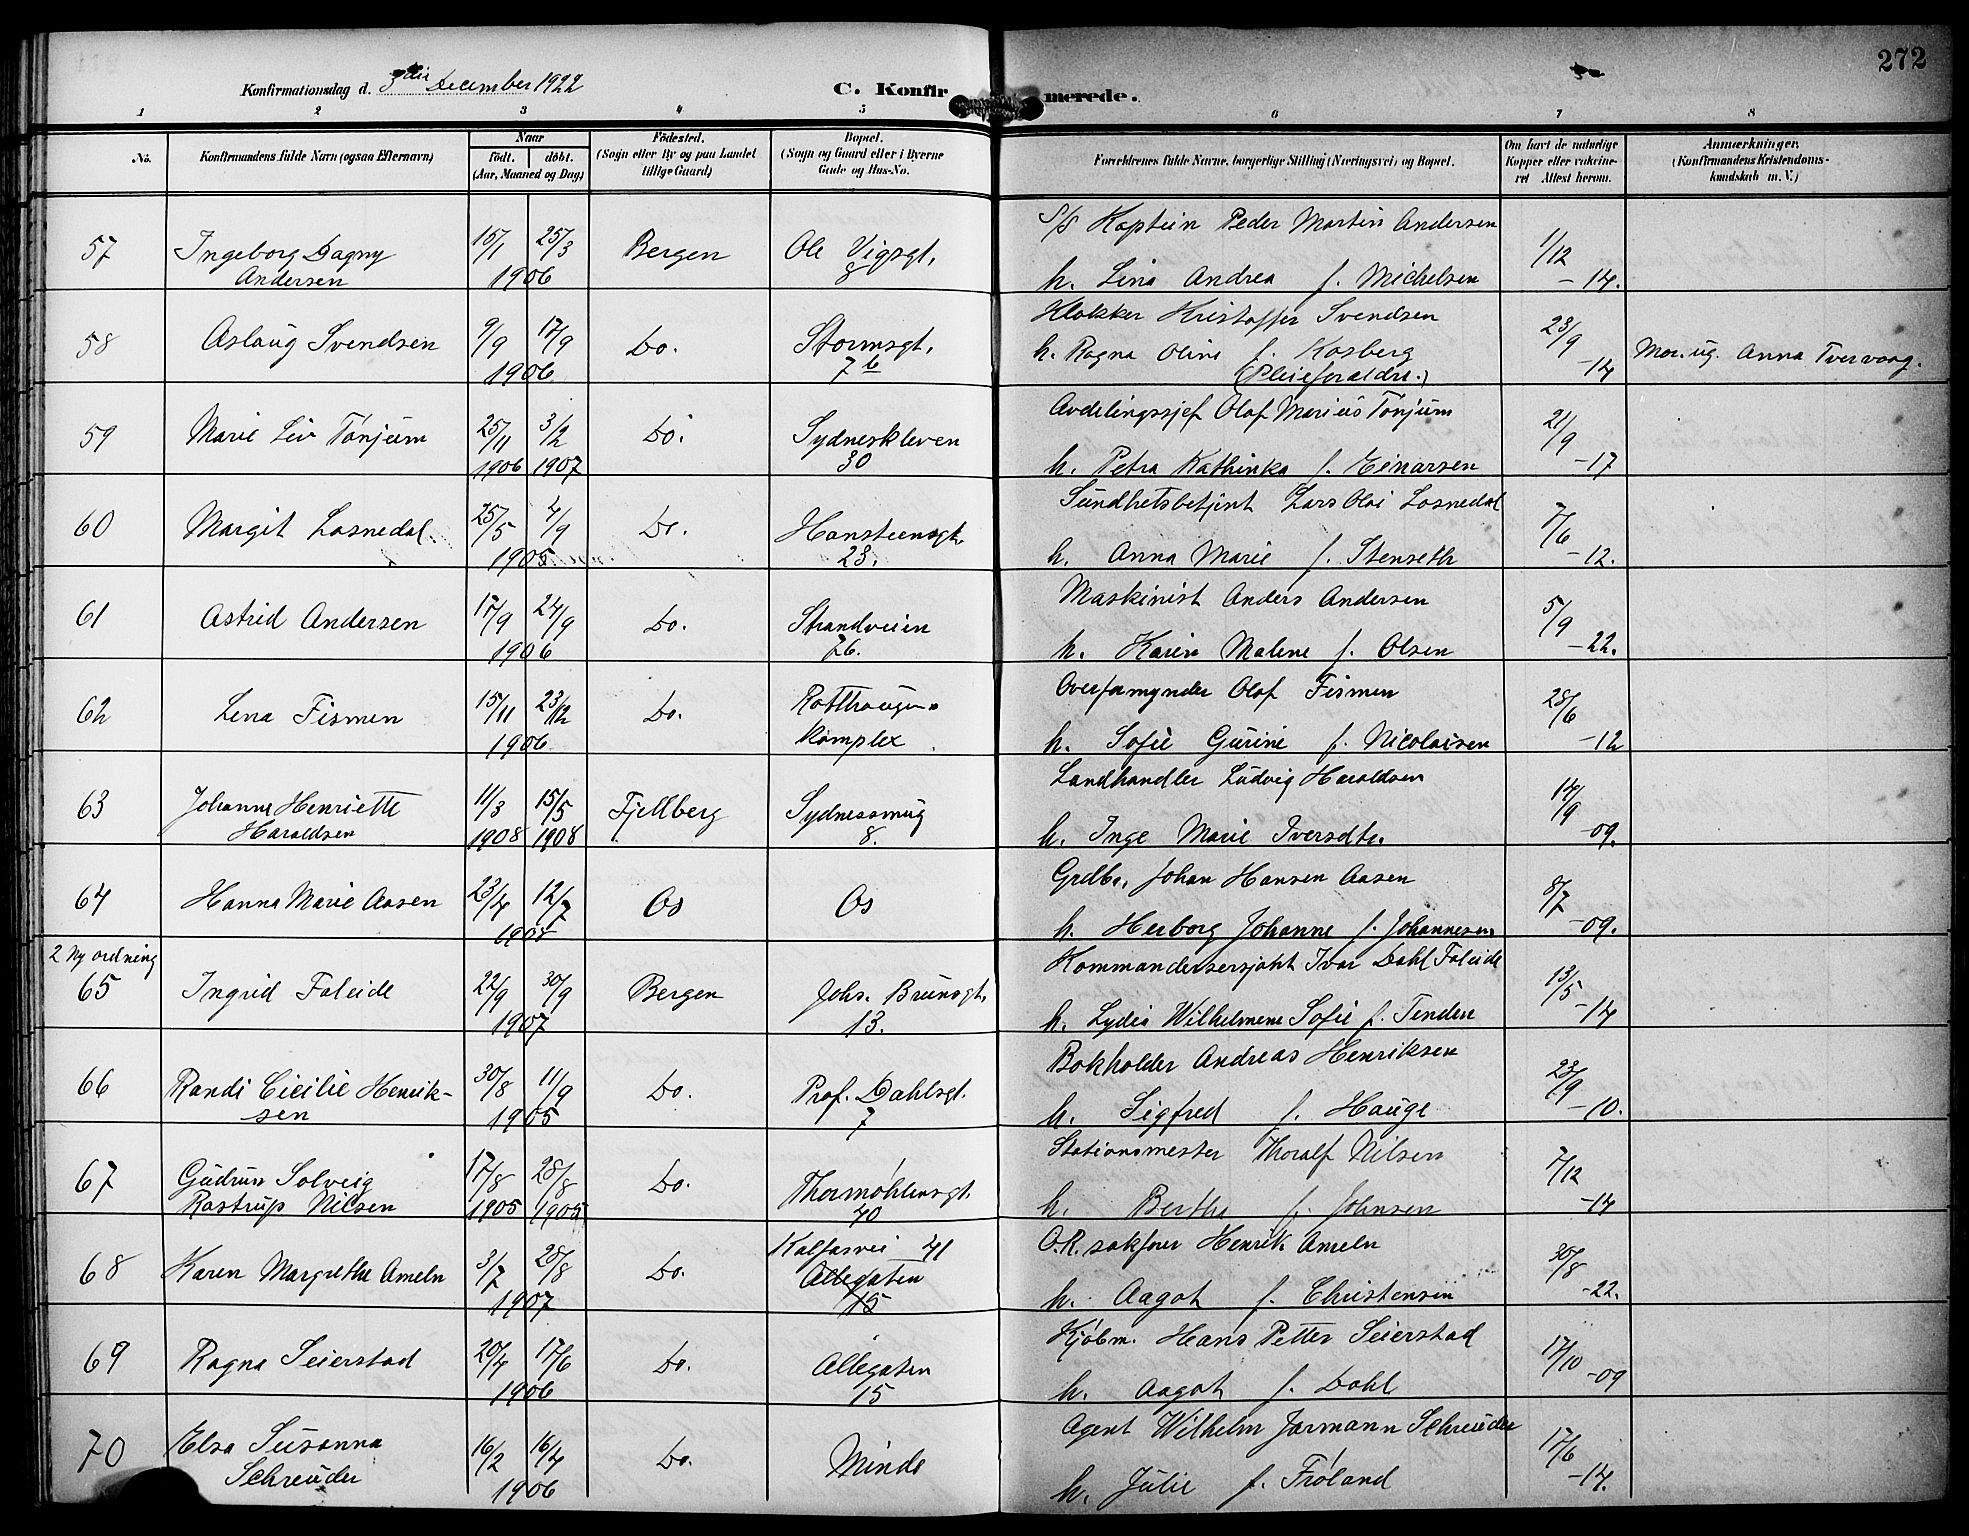 272
Konfirmationsdag d. 3die December 1922
C. Konfirmerede.
1 2 3 4 5 6 7 8
No.
Konfirmandens fulde Navn (ogsaa Efternavn)
Naar
födt. döbt.
(Aar, Maaned og Dag)
Födested.
(Sogn eller By og paa Landet
tillige Gaard)
Bopæl.
(Sogn og Gaard eller i Byerne
Gade og Hus-No.
Forældrenes fulde Navne, borgerlige Stilling (Næringsvei) og Bopæl.
Om havt de naturlige
Kopper eller vaccine-
ret Attest herom.
Anmærkninger.
(Konfirmandens Kristendoms-
kundskab m. V.)
57 Ingeborg Dagny Andersen 15/1 25/3 1906 Bergen Ole Vigsgt. 8
S/S Kaptein Peder Martin Andersen
h. Lina Andrea f. Michelsen 1/12 -14.
58 Aslaug Svendsen 9/9 17/9 1906 Do. Stormsgt. 7 b
Klokker Kristoffer Svendsen
h. Ragna Oline f. Kosberg
(Pleieforældre.) 23/9 -14 Mor: ug. Anna Tvervaag.
59 Marie Liv Tønjum 25/11 1906 3/2 1907 Do. Sydneskleven 30
Avdelingssjef Olaf Marius Tønjum
h. Petra Kathinka f. Einarsen 21/9 -17
60 Margit Losnedal 25/5 4/9 1905 Do. Hansteensgt. 23.
Sundhetsbetjent Lars Olai Losnedal
h. Anna Marie f. Stenseth 7/6 -12.
61 Astrid Andersen 17/9 24/9 1906 Do. Strandveien 26.
Maskinist Anders Andersen
h. Karen Malene f. Olsen 5/9 -22.
62 Lena Fismen 15/11 23/12 1906 Do. Rotthaugenkomplex
Overformynder Olaf Fismen
h. Sofie Gurine f. Nicolaisen 28/6 -12
63 Johanne Henriette Haraldsen 11/3 1908 15/5 1908 Fjellberg Sydnessmug 8.
Landhandler Ludvig Haraldsen
h. Inge Marie Iversdtr. 14/9 -09.
64 Hanna Marie Aasen 23/4 12/7 1908 Os Os
Grdbr. Johan Hansen Aasen
h. Herborg Johanne f. Johannesen 8/7 -09.
2 Ny ordning
65 Ingrid Faleide 22/9 30/9 1907 Bergen Johs. Brunsgt. 13.
Kommandersersjant Ivar Dahl Faleide
h. Lydia Wilhelmene Sofie f. Tenden 13/5 -14
66 Randi Cicilie Henriksen 30/8 11/9 1905 Do. Prof. Dahlsgt. 7
Bokholder Andreas Henriksen
h. Sigfred f. Hauge 23/9 -10.
67 Gudrun Solveig Rastrup Nilsen 17/8 1905 28/8 1905 Do. Thormøhlensgt. 40
Stationsmester Thoralf Nilsen
h. Bertha f. Johnsen 7/12 -14
68 Karen Margrethe Ameln 3/7 28/8 1907 Do. Kalfarvei 41
Allegaten 15
O.R. sakfører Henrik Ameln
h. Aagot f. Christensen 30/8 -22.
69 Ragna Seierstad 20/4 17/6 1906 Do. Allegaten 15
Kjøbm. Hans Petter Seierstad
h. Aagot f. Dahl 17/10 -09
70 Elsa Susanna Schreuder 16/2 16/4 1906 Do. Minde
Agent Wilhelm Jarmann Schreuder
h. Julie f. Frøland 17/6 -14.